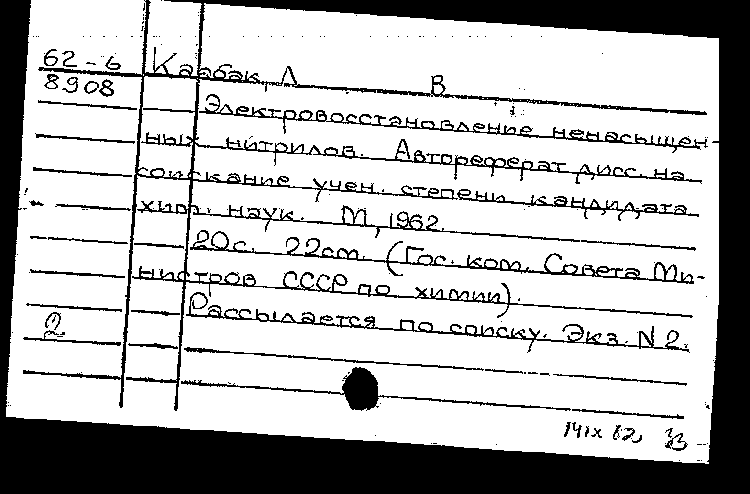 62-6 Каабак, Л В
8908
Электровосстановление ненасыщен-
ных нитрилов. Автореферат дисс. на
соискание учен. степени кандидата
хим. наук. М, 1962.
20с. 22см. (Гос. ком. Совета Ми-
нистров СССР по химии).
Рассылается по списку. Экз. N2.
2
14 IX 62